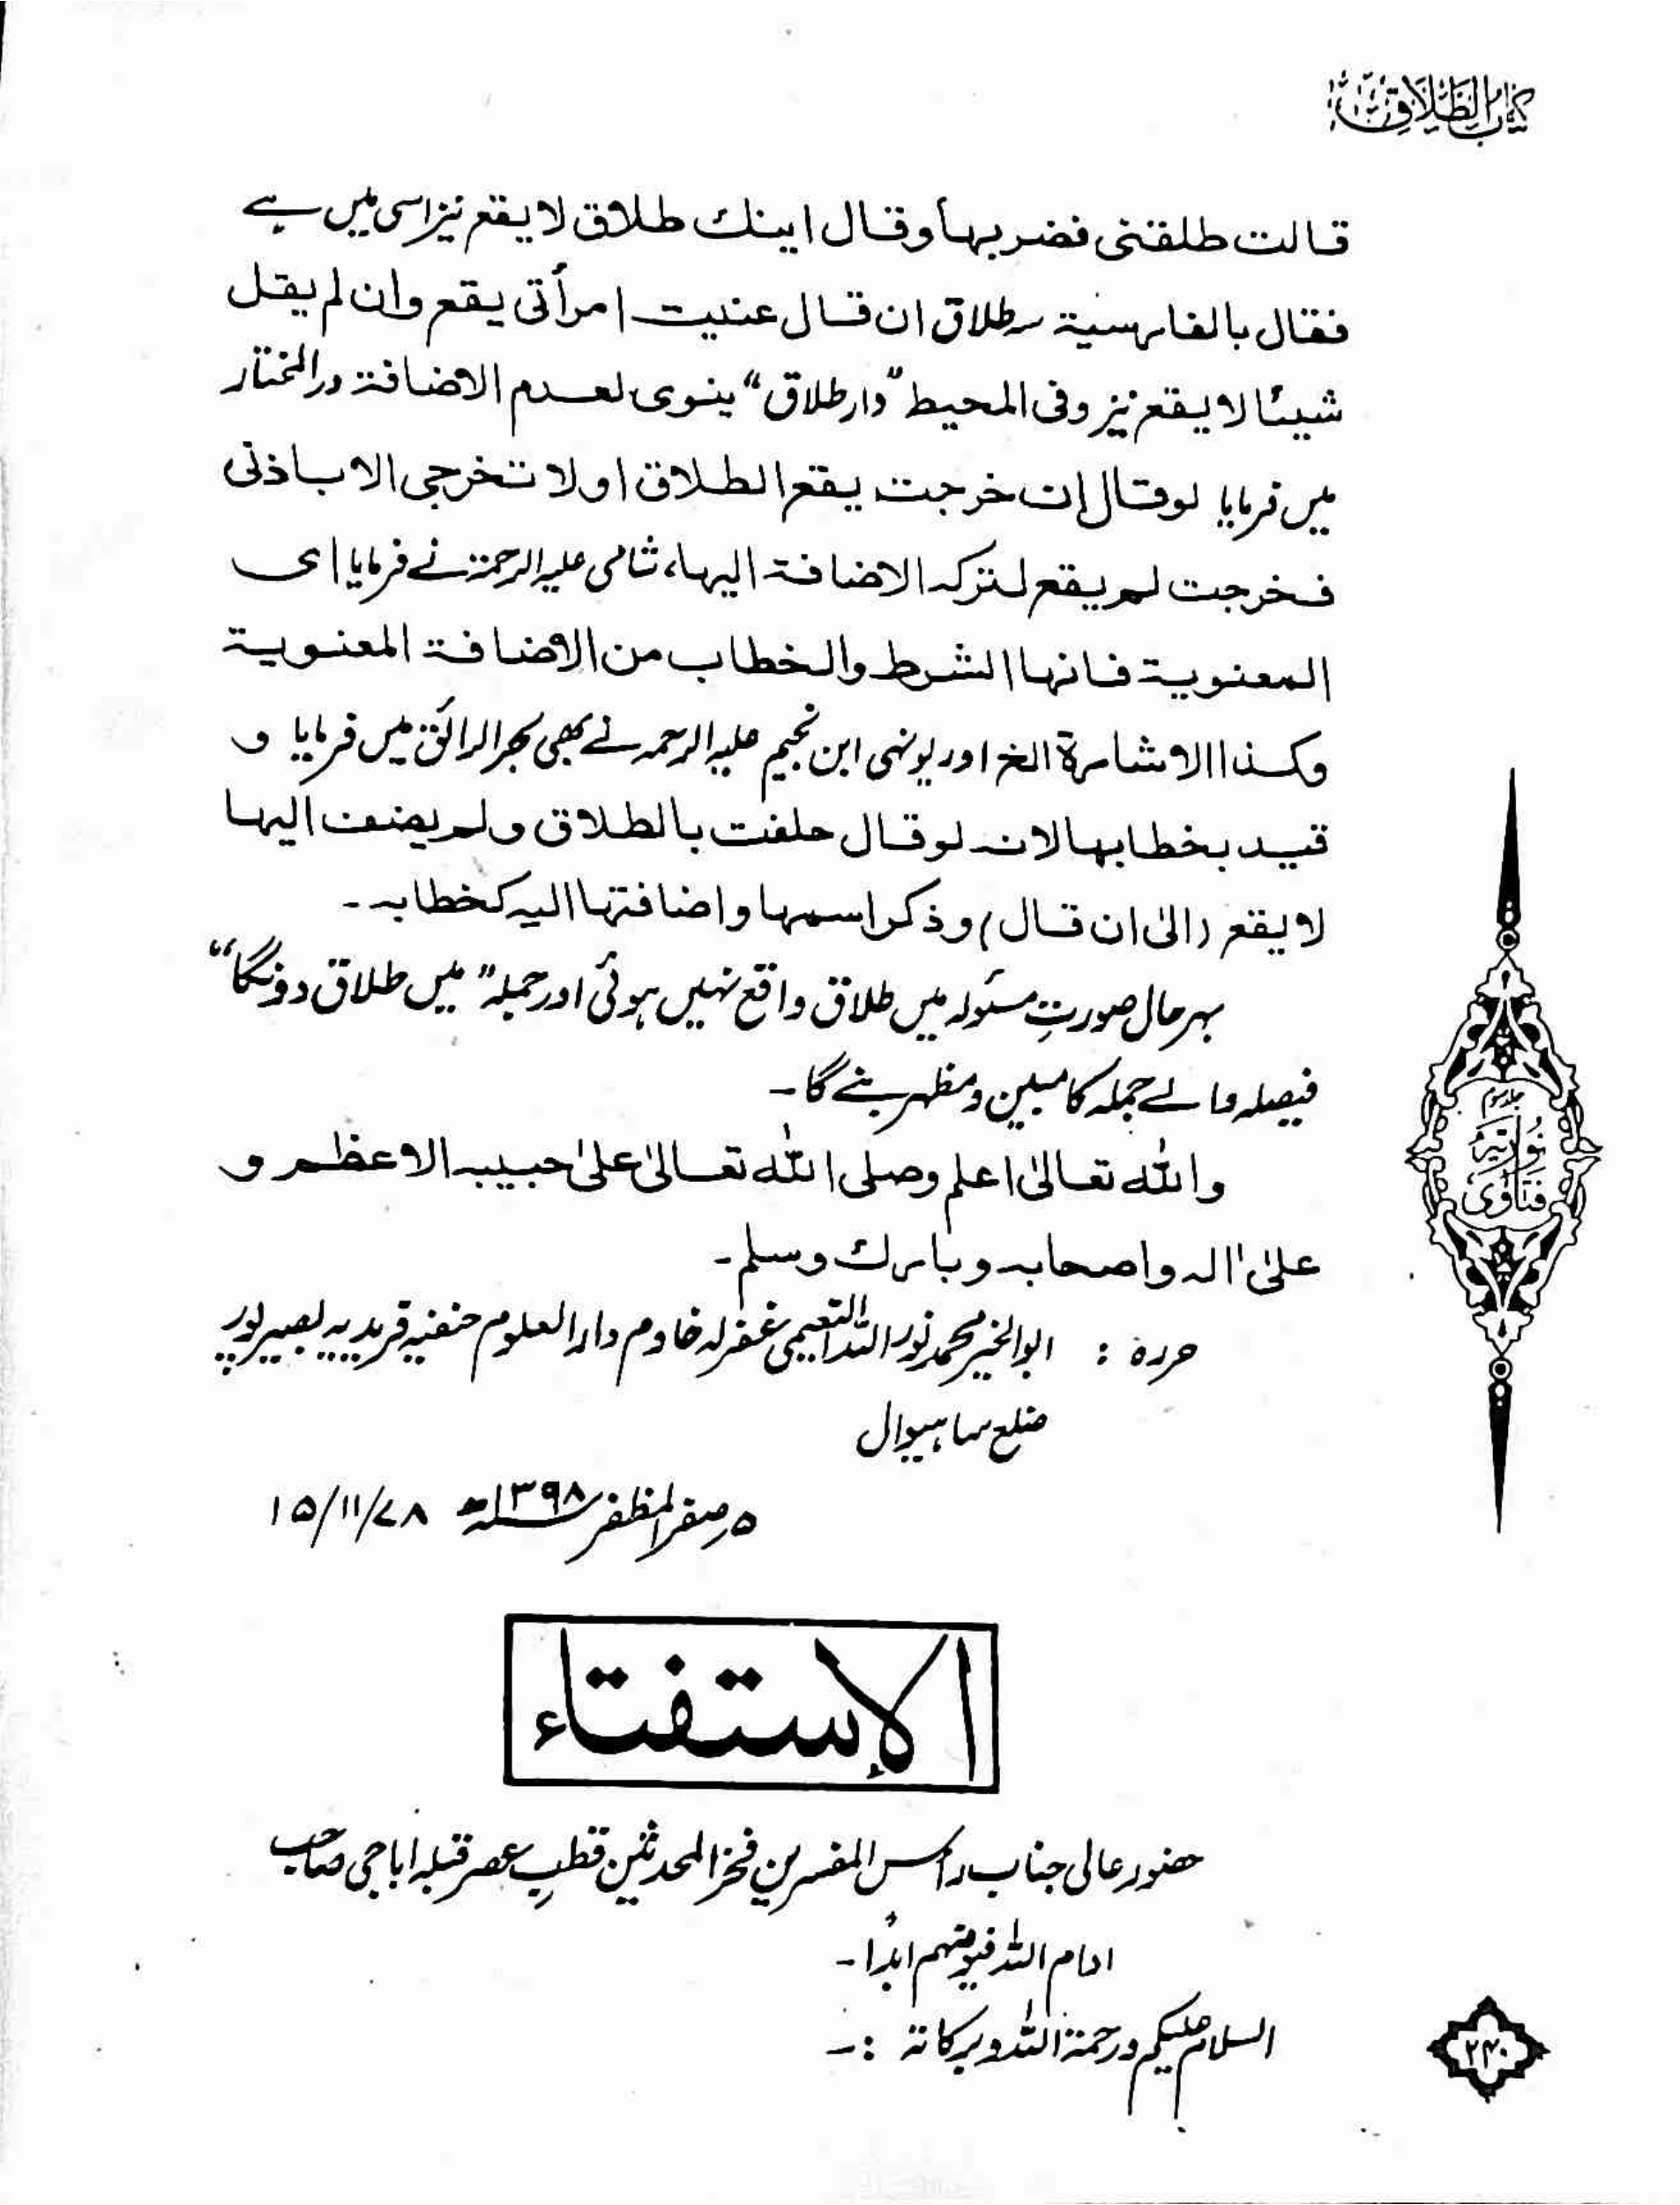 کتاب الطلاق
قالت طلقتنی فضربہا وقال اینك طلاق لا یقع نیز اسی میں ہے
فقال بالفارسیة سہ طلاق ان قال عنیت امرأتی یقع وان لم یقل
شیئا لا یقع نیز وفی المحیط "دار طلاق" ینوی لعدم الاضافة درالمختار
میں فرمایا لوقال ان خرجت یقع الطلاق او لا تخرجی الا باذنی
فخرجت لم یقع لترکہ الاضافة الیہا، شامی علیہ الرحمۃ نے فرمایا ای
المعنویة فانہا الشرط والخطاب من الاضافة المعنویة
وکذا الاشارة الخ اور یونہی ابن نجیم علیہ الرحمہ نے بھی بحر الرائق میں فرمایا و
قید بخطابہا لانہ لو قال حلفت بالطلاق ولم یضف الیہا
لا یقع (الیٰ ان قال) وذکر اسمہا و اضافتہا الیہ کخطابہ۔
بہرحال صورتِ مسئولہ میں طلاق واقع نہیں ہوئی اور جملہ "میں طلاق دونگا"
فیصلہ والے جملہ کا مبین و مظہر بنے گا۔
واللہ تعالیٰ اعلم وصلی اللہ تعالیٰ علیٰ حبیبہ الاعظم و
علیٰ اٰلہ واصحابہ وبارك وسلم۔
حررہ : ابوالخیر محمد نور اللہ النعیمی غفرلہ خادم دار العلوم حنفیہ فریدیہ بصیر پور
ضلع ساہیوال
۵ صفر المظفر ۱۳۹۸ھ ۱۵/۱۱/۷۸
جلد سوم
فتاوٰی نوریہ
الاستفتاء
حضور عالی جناب رأس المفسرین فخر المحدثین قطبِ عصر قبلہ اباجی صاحب
ادام اللہ فیوضہم ابدًا۔
السلام علیکم ورحمۃ اللہ وبرکاتہ :۔
۲۳۰